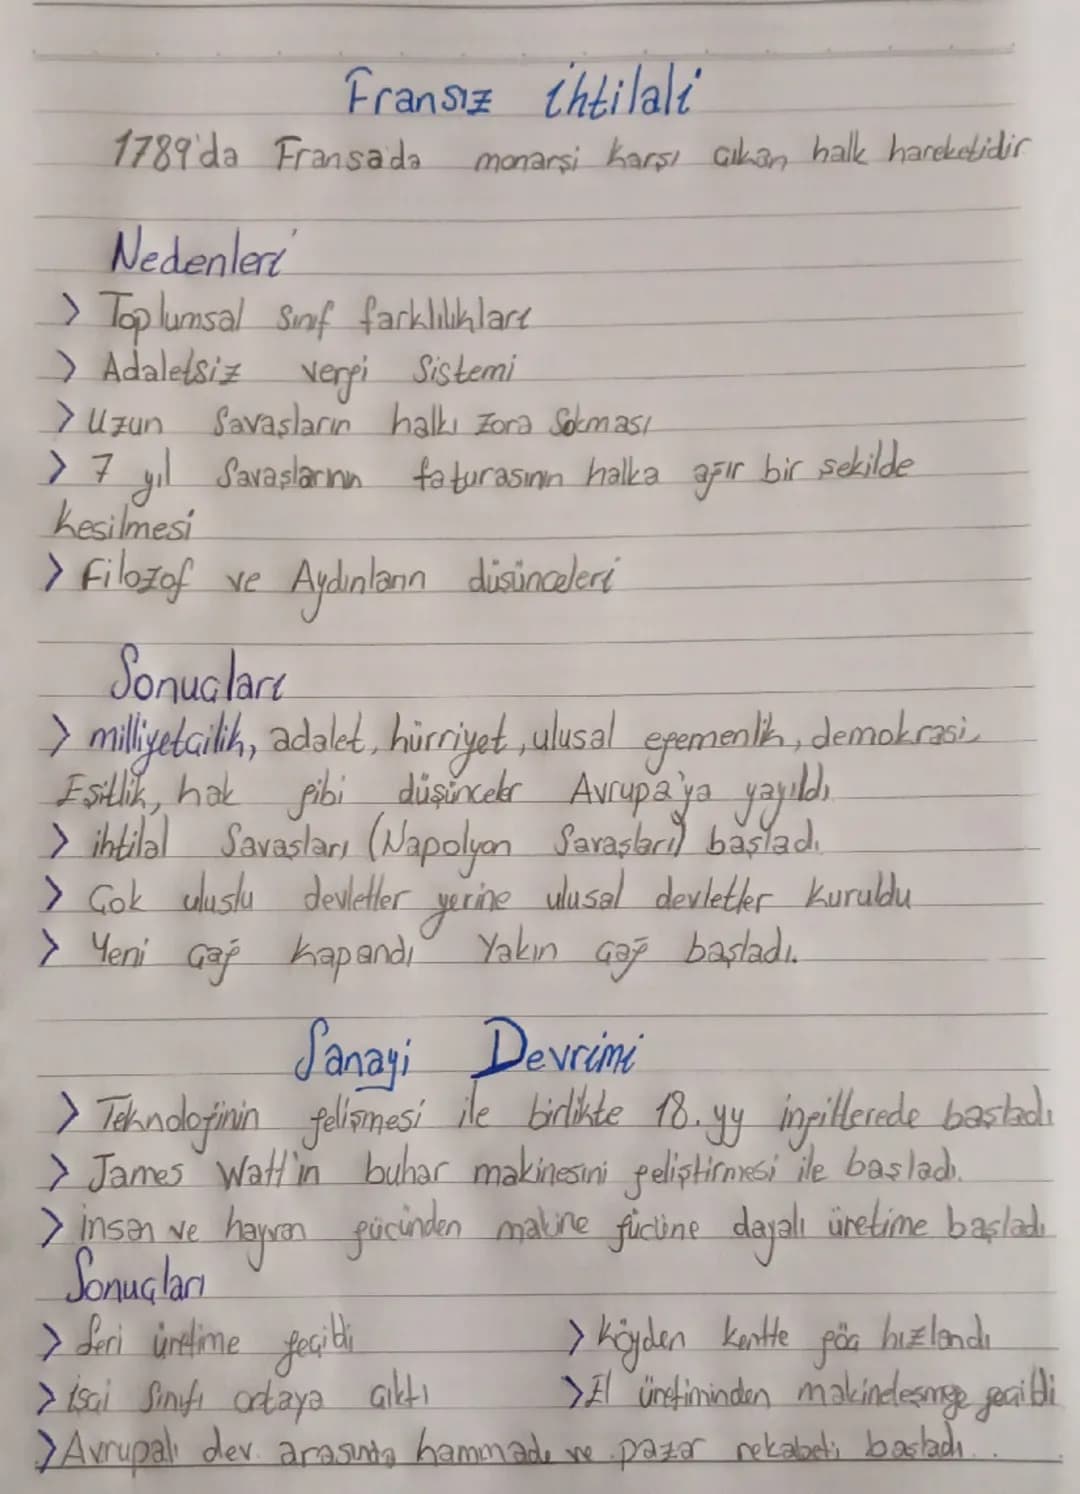 Fransız ihtilali
1789'da Fransada monarşi karşı çıkan halk hareketidir
Nedenleri
> Toplumsal sınıf farklılıkları
> Adaletsiz vergi Sistemi
> Uzun Savaşların halkı zora Sokması
> 7 yıl Savaşlarının faturasının halka ağır bir şekilde
kesilmesi
> Filozof ve Aydınların düşünceleri
Sonuçları
> milliyetçilik, adalet, hürriyet, ulusal egemenlik, demokrasi,
Eşitlik, hak gibi düşünceler Avrupa'ya yayıldı
> ihtilal Savaşları (Napolyon Savaşları) başladı.
> Çok uluslu devletler yerine ulusal devletler kuruldu
> Yeni Çağ kapandı Yakın Çağ başladı.
Sanayi Devrimi
> Teknolojinin gelişmesi ile birlikte 18. yy ingilterede başladı
> James Watt'ın buhar makinesini geliştirmesi ile başladı.
> insan ve hayvan gücünden makine gücüne dayalı üretime başladı
Sonuçları
> Seri üretime geçildi > köyden kentte göç hızlandı
> işçi Sınıfı ortaya çıktı > El üretiminden makineleşmeye geçildi
> Avrupalı dev. arasında hammadde ve pazar rekabeti başladı...